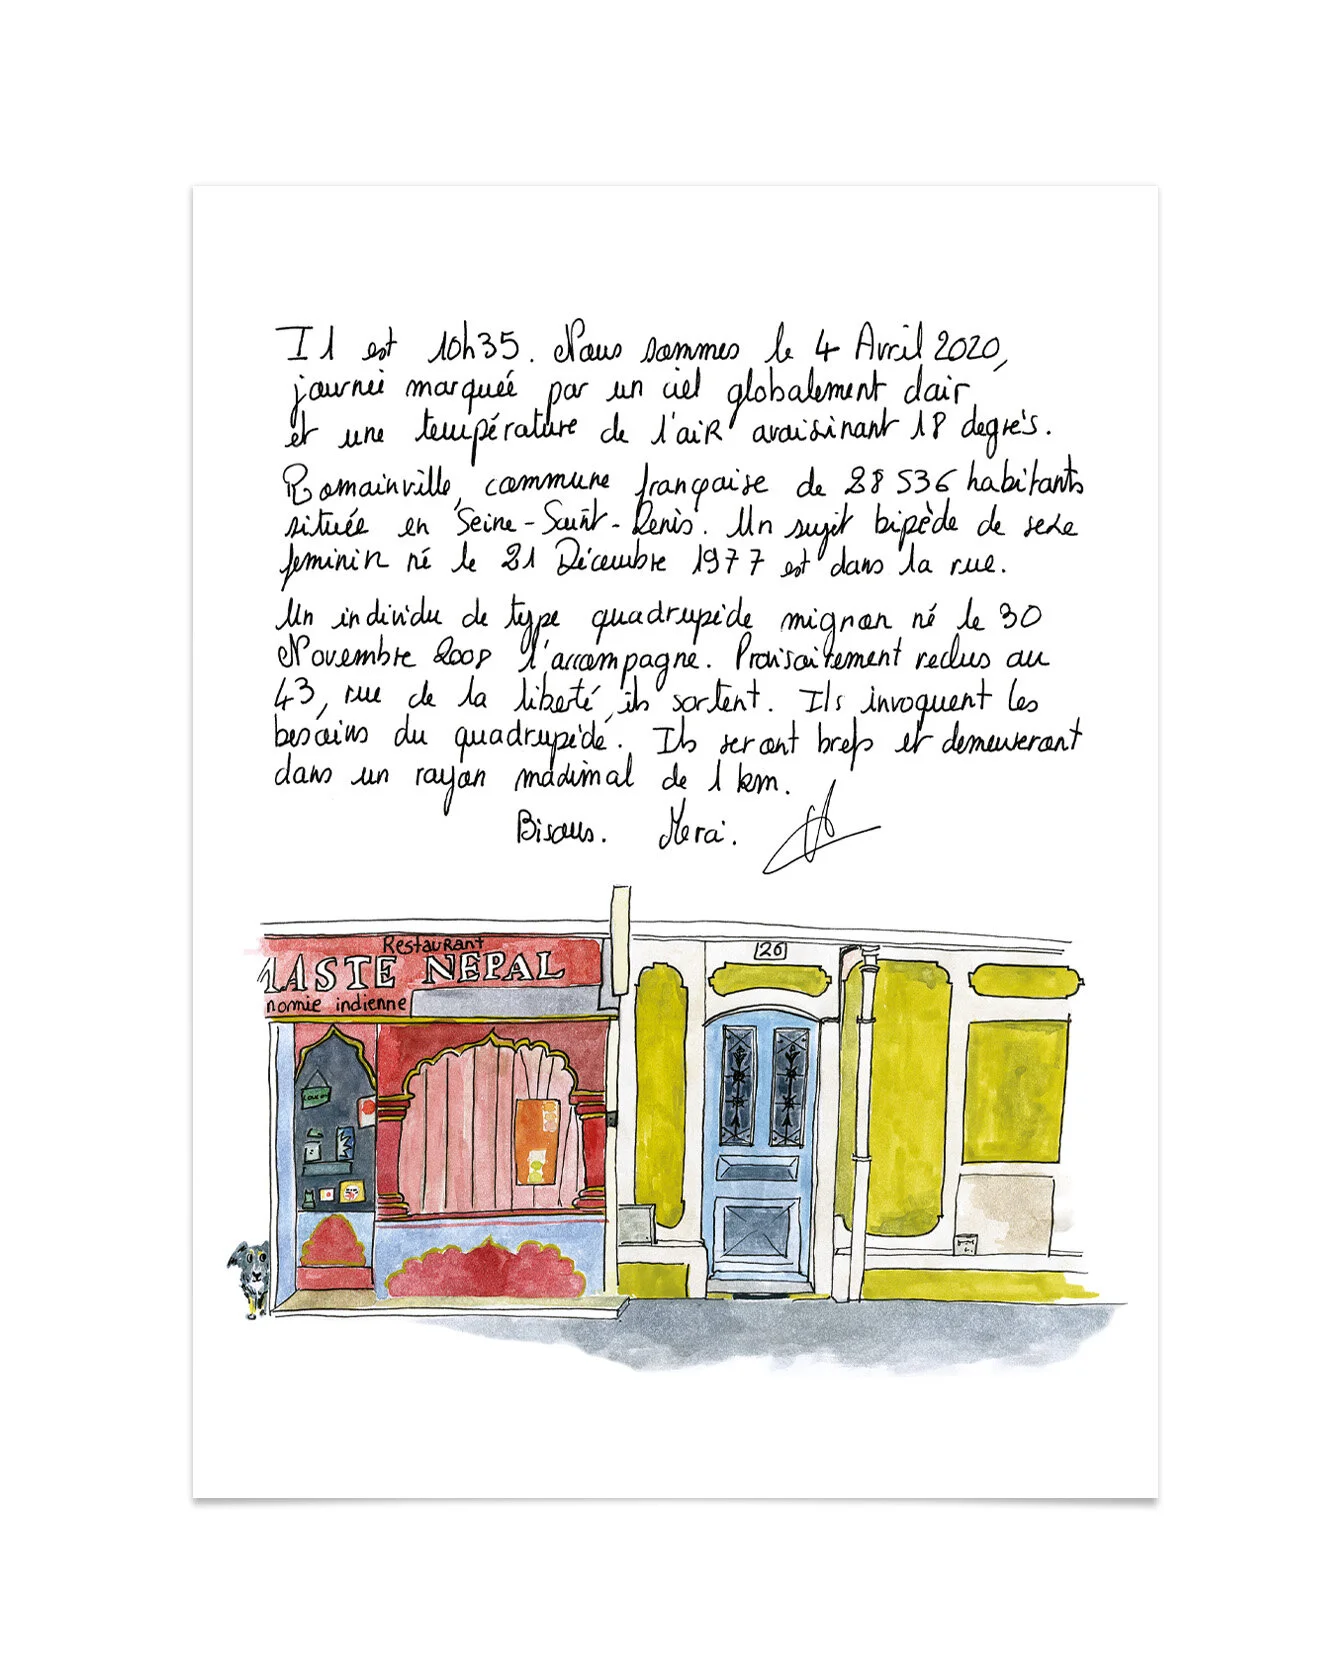 Il est 10h35. Nous sommes le 4 Avril 2020,
journée marquée par un ciel globalement clair
et une température de l'air avoisinant 18 degrés.
Romainville, commune française de 28 536 habitants
située en Seine-Saint-Denis. Un sujet bipède de sexe
feminin né le 21 Décembre 1977 est dans la rue.
Un individu de type quadrupède mignon né le 30
Novembre 2008 l'accompagne. Provisoirement reclus au
43, rue de la liberté, ils sortent. Ils invoquent les
besoins du quadrupède. Ils seront brefs et demeureront
dans un rayon maximal de 1 km.
Bisous. Merci.
Restaurant
MASTE NEPAL
nomie indienne
26